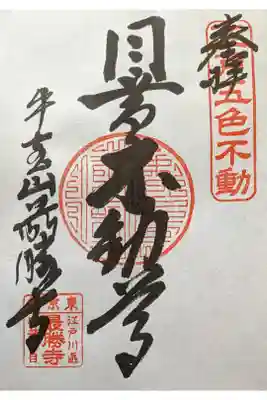 奉拝
五色不動
目黄不動尊
牛宝山最勝寺
東京
江戸川区
最勝寺